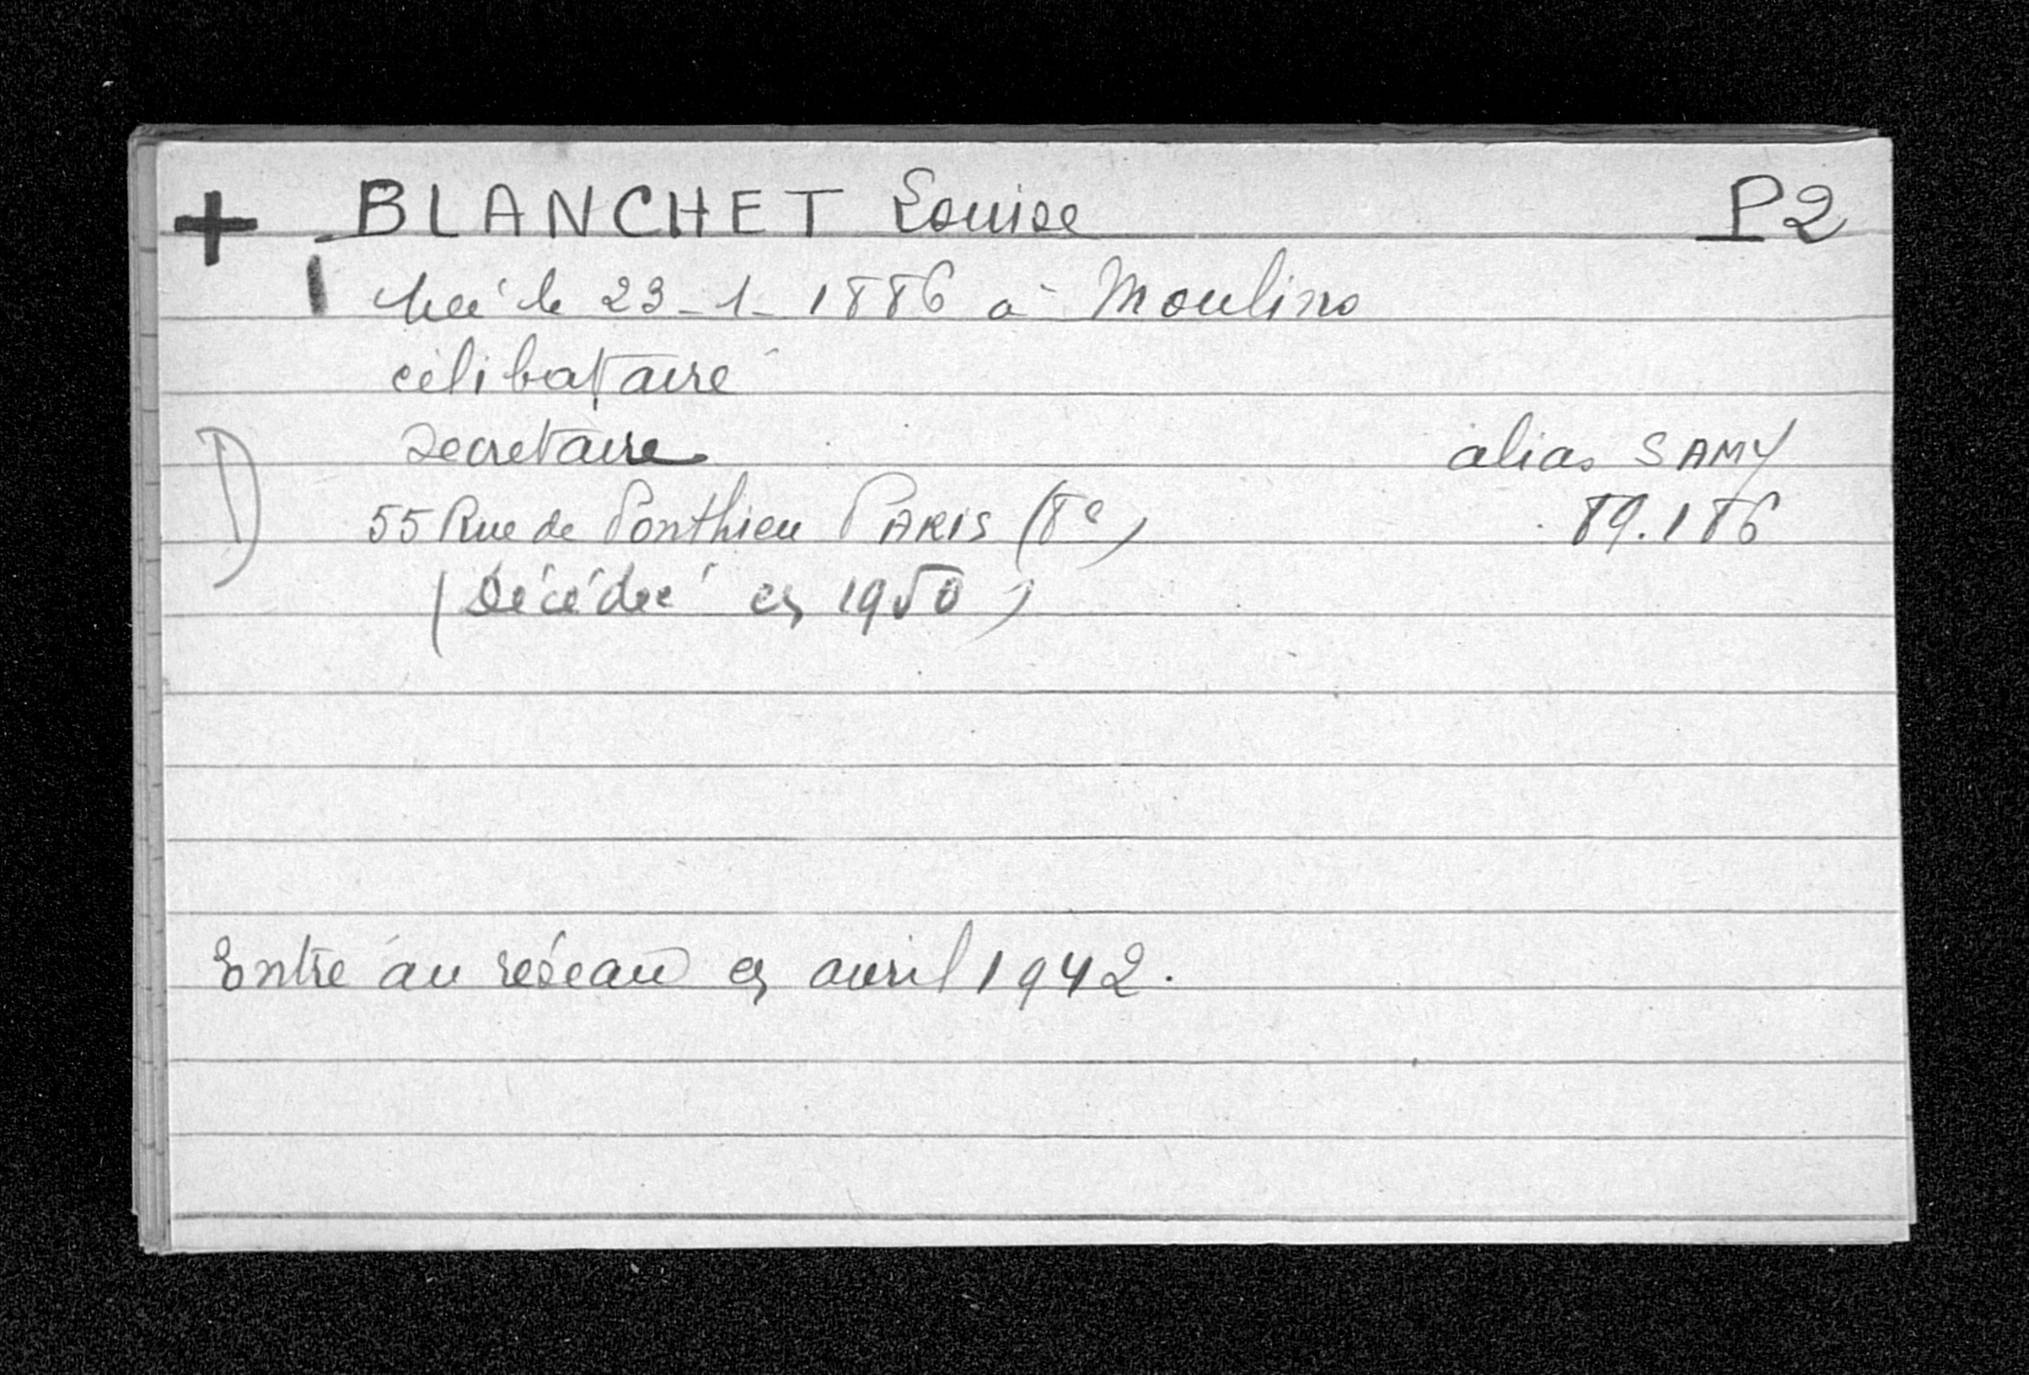 + BLANCHET Louise P2
Née le 23-1-1886 à Moulins
célibataire
secretaire alias SAMY
55 Rue de Ponthieu PARIS (8e) 89.186
(Décédée en 1950)
Entré au réseau en avril 1942.